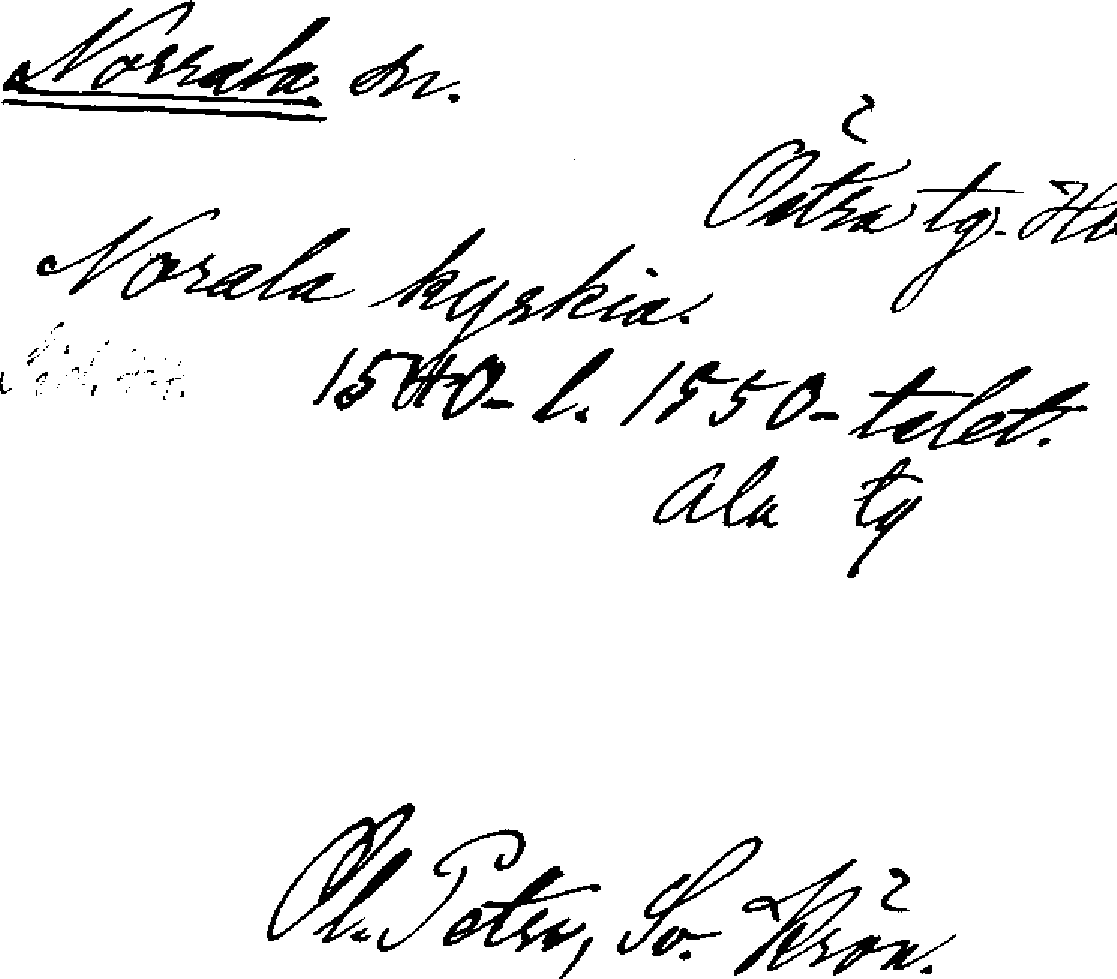 Norrala sn.
Östra tg. Hä
Norala kyrkia.
1540- l. 1550-talet.
Ala tg
Ol. Petri, Sv. Krön.